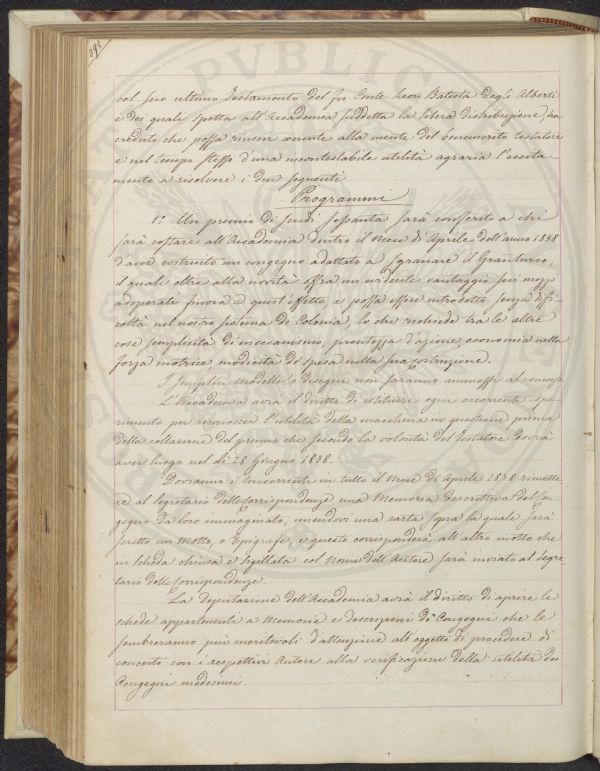 392
col suo ultimo Testamento del fu Conte Leon Batista Degli Alberti
e dei quali spetta all'Accademia suddetta la libera distribuzione, ha
creduto che possa riuscir coerente alla mente del benemerito testatore
e nel tempo stesso d'una incontestabile utilità agraria l'eccita-
mento a risolvere i due seguenti
Programmi
1.° Un premio di Scudi sessanta sarà conferito a chi
farà costare all'Accademia dentro il Mese di Aprile dell'anno 1838
d'aver costruito un congegno adattato a sgranare il Granturco,
il quale oltre alla novità offra un evidente vantaggio sui mezzi
adoperati finora a quest'effetto, e possa essere introdotto senza diffi-
coltà nel nostro sistema di Colonia, lo che richiede tra le altre
cose semplicità di meccanismo, prontezza d'azione, economia nella
forza motrice modicità di spesa nella sua costruzione.
I semplici modelli o disegni non saranno ammessi al concorso
L'Accademia avrà il diritto di istituire ogni occorrente espe-
rimento per riconoscer l'utilità della macchina in questione prima
della collazione del premio che secondo la volontà del Testatore dovrà
aver luogo nel dì 28 Giugno 1838.
Dovranno i Concorrenti in tutto il Mese di Aprile 1838 rimette-
re al Segretario delle Corrispondenze una Memoria descrittiva del Con-
gegno da loro immaginato, unendovi una carta sopra la quale sarà
scritto un Motto, o Epigrafe, e questo corrisponderà all'altro motto che
in scheda chiusa e sigillata col Nome dell'Autore sarà inviato al Segre-
tario delle Corrispondenze.
La Deputazione dell'Accademia avrà il diritto di aprire le
schede appartenenti a Memorie e descrizioni di Congegni che le
sembreranno più meritevoli d'attenzione all'oggetto di procedere di
concerto con i respettivi Autori alla verificazione della utilità dei
Congegni medesimi.